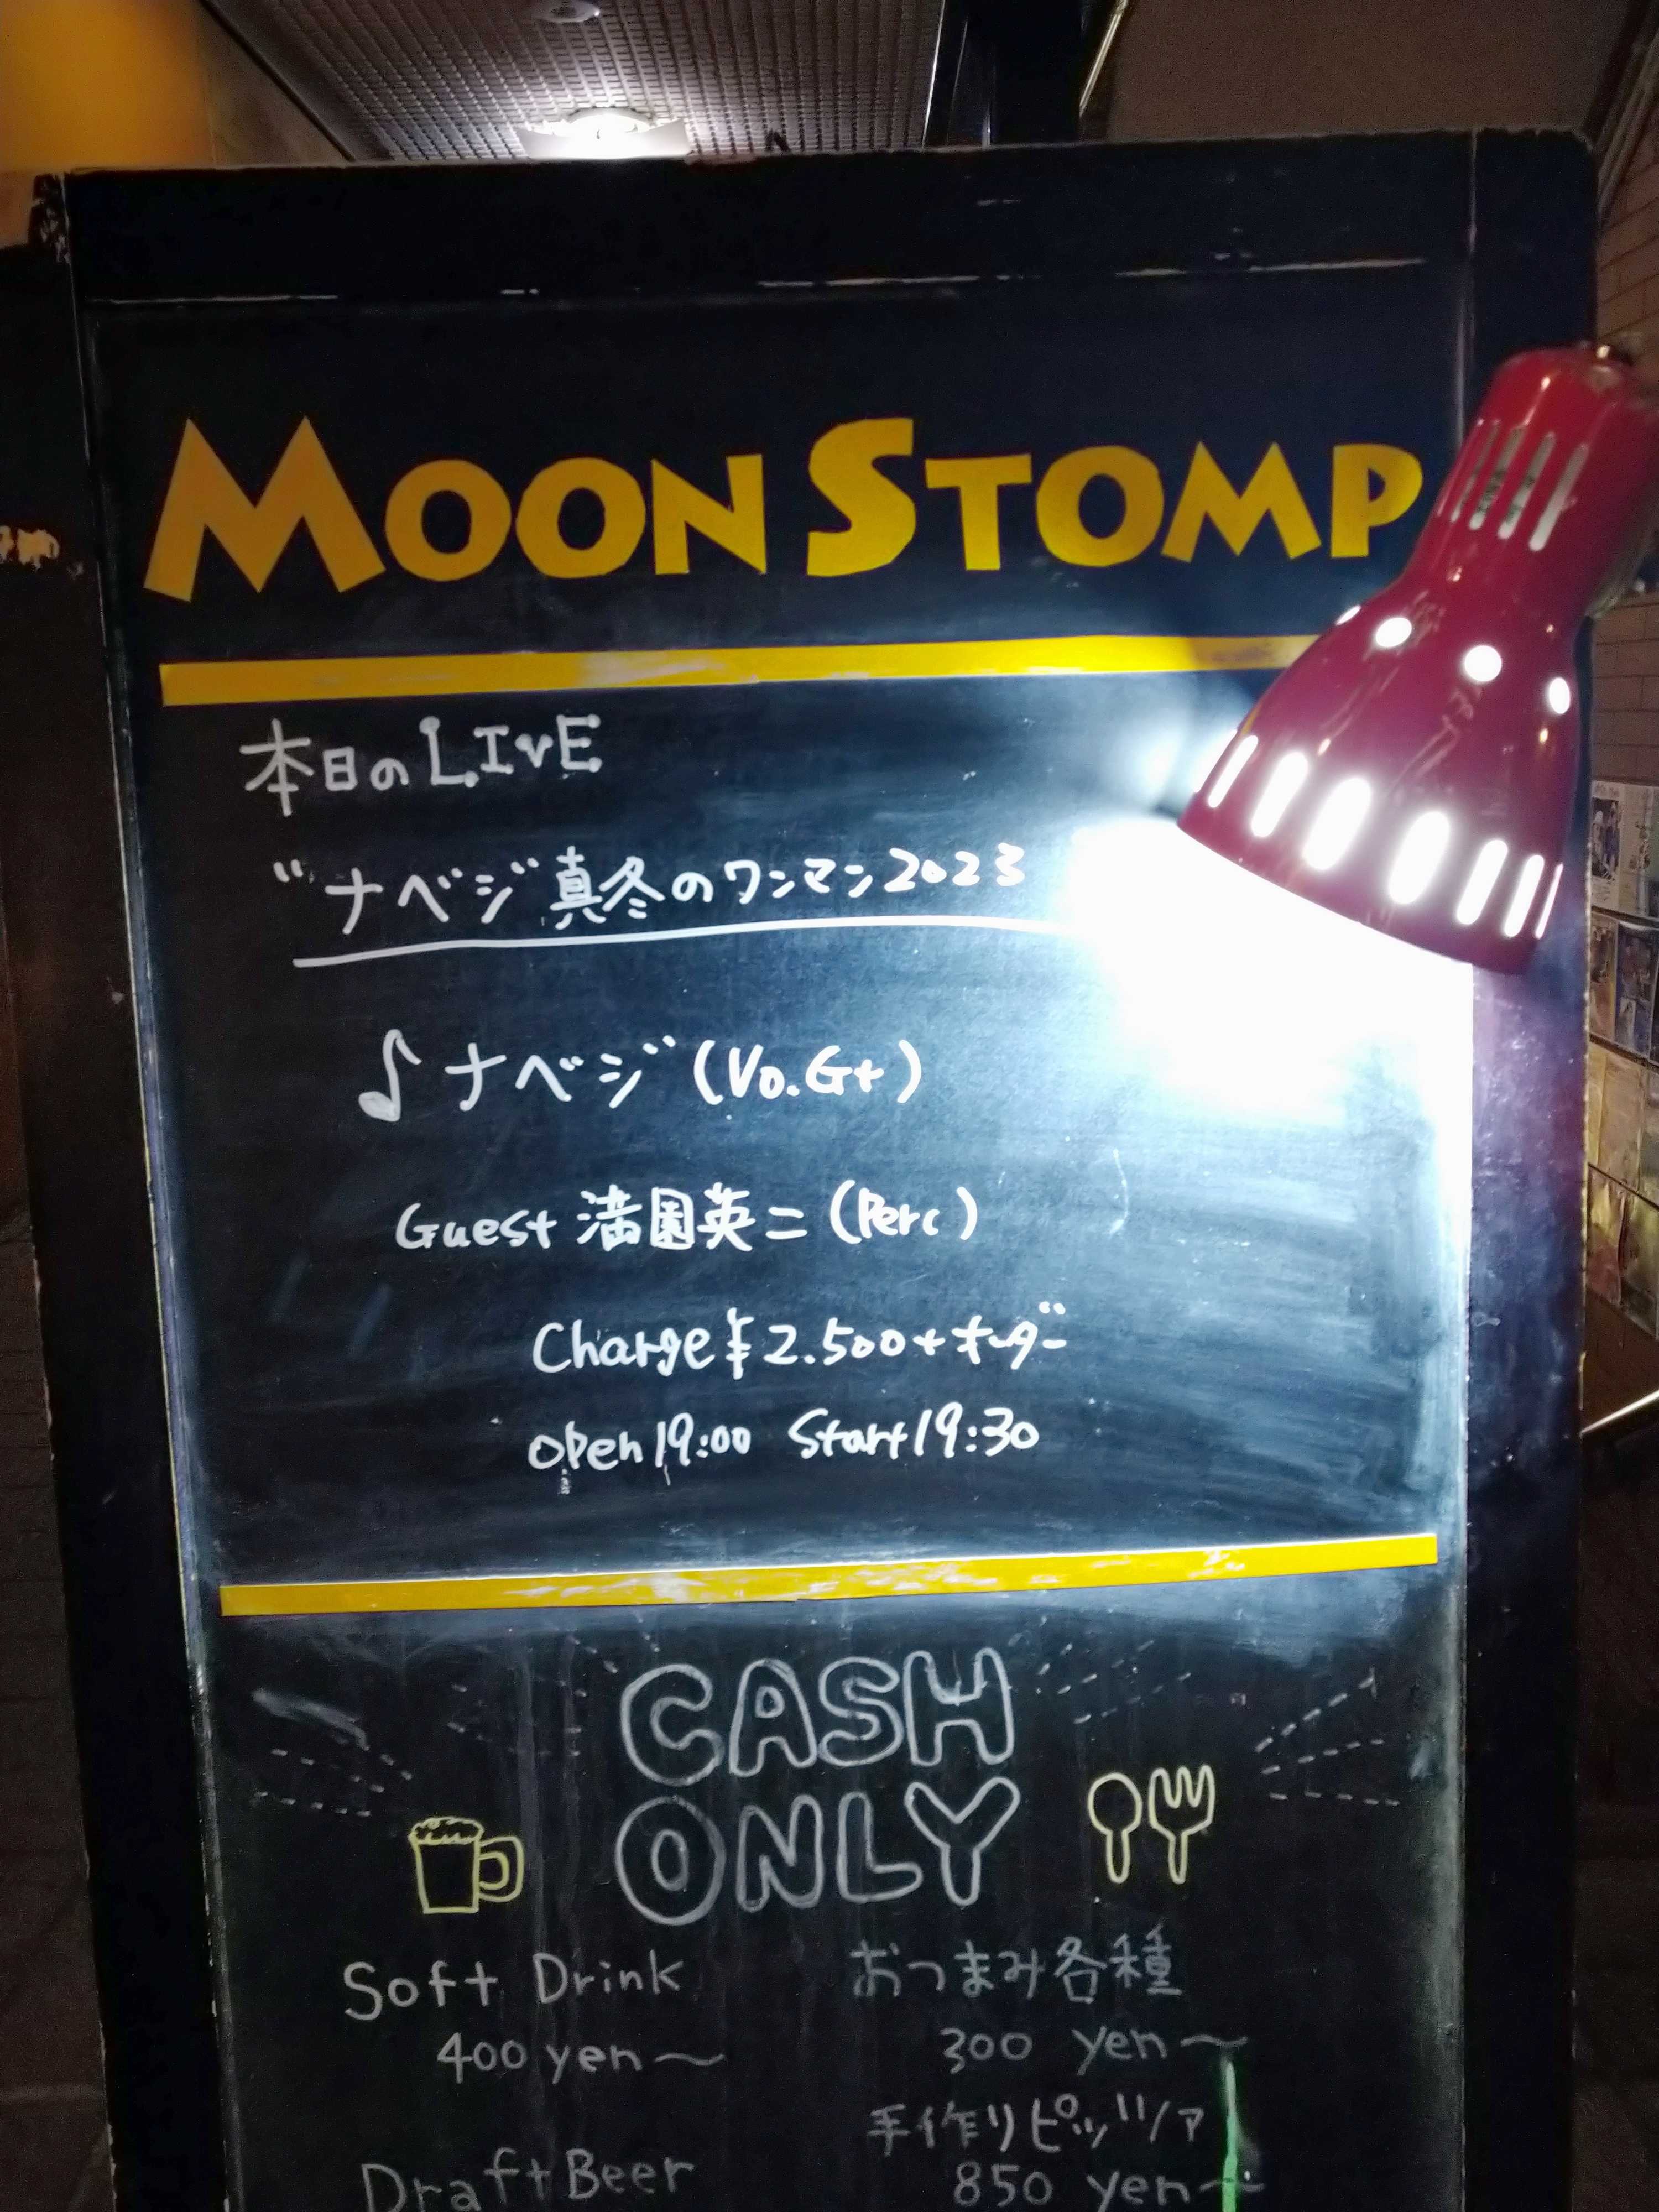 MOON STOMP
本日のLIVE
"ナベジ"真冬のワンマン2023
♪ナベジ(Vo.Gt)
Guest 満園英二(Perc)
Charge¥2.500+オーダー
open19:00 Start19:30
CASH
ONLY
Soft Drink おつまみ各種
400 yen〜 300 yen〜
手作りピッツァ
Draft Beer 850 yen〜